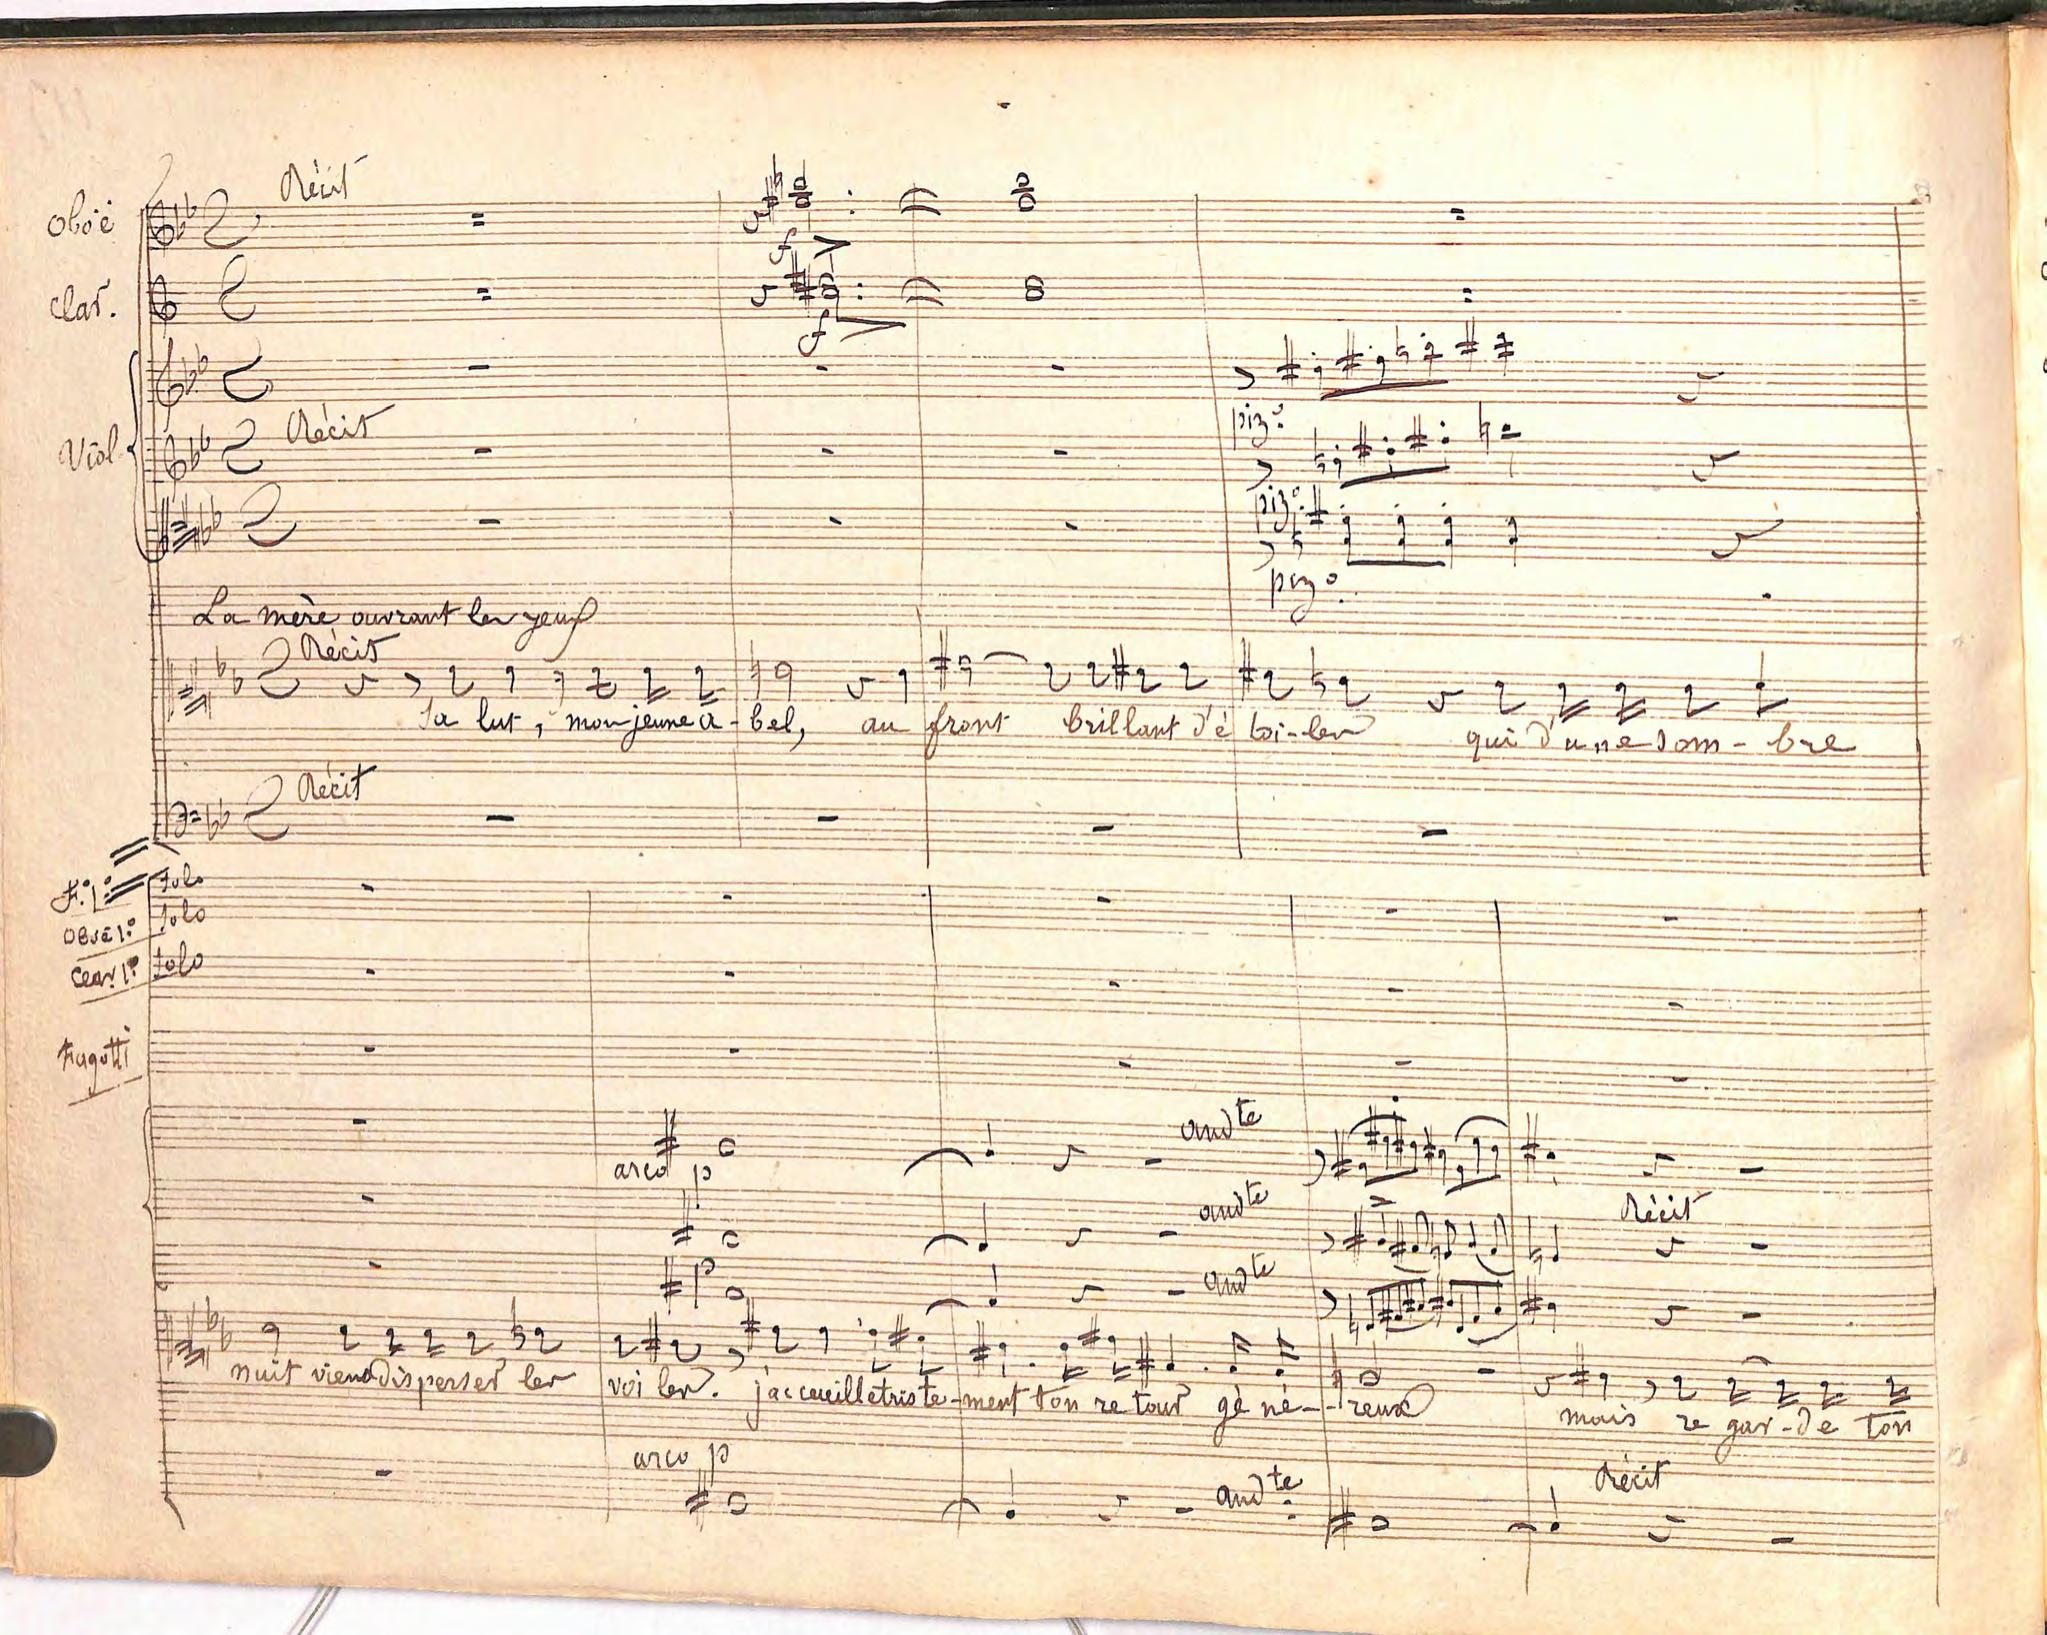 Récit
Oboë
f
Clar.
f
Récit
Viol.
pizº
pizº
pizº
La mère ouvrant les yeux
Récit
Sa lut, mon jeune a-bel, au front brillant d'é toi-les qui d'u ne som-bre
Récit
Fl. 1º Solo
Oboe 1º Solo
Clar 1º Solo
Fagotti
andte
arco p
andte Récit
p andte
nuit viens disperser les voi les. j'accueille triste-ment ton re tour gé né--reux mais re gar-de ton
arco p
andte Récit